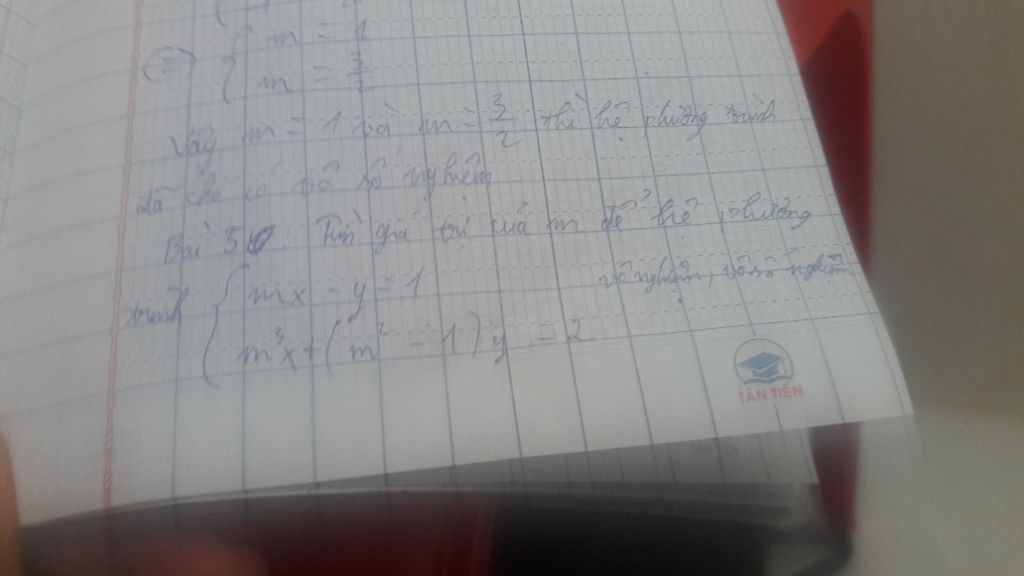 (=) { m = 1
{ m = 3/2
Vậy m = 1 và m = 3/2 thì hệ phương trình
đã cho có vô số nghiệm
Bài 3 Tìm giá trị của m để hệ phương
trình { mx - y = 1 vô nghiệm, vô số nghiệm
m³x + (m² - 1)y = 2
TÂN TIẾN
TÂN TIẾN